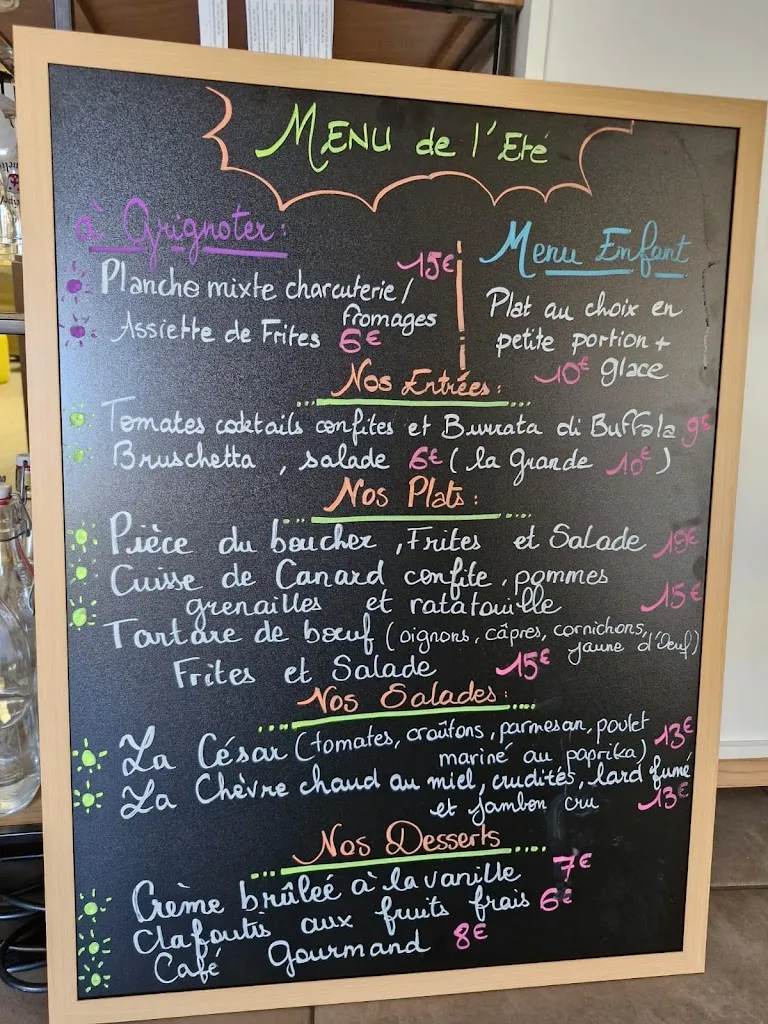 MENU de l'Eté
à Grignoter:
15€
Planche mixte charcuterie/
fromages
Assiette de Frites 6€
Menu Enfant
Plat au choix en
petite portion +
10€ glace
Nos Entrées:
Tomates cocktails confites et Burrata di Buffala 9€
Bruschetta, salade 6€ (la Grande 10€)
Nos Plats:
Pièce du boucher, Frites et Salade 19€
Cuisse de Canard confite, pommes
grenailles et ratatouille 15€
Tartare de bœuf (oignons, câpres, cornichons,
jaune d'Oeuf)
Frites et Salade 15€
Nos Salades:
La César (tomates, croûtons, parmesan, poulet
mariné au paprika) 13€
La Chèvre chaud au miel, crudités, lard fumé
et jambon cru 13€
Nos Desserts
Crème brûleé à la vanille 7€
Clafoutis aux fruits frais 6€
Café Gourmand 8€